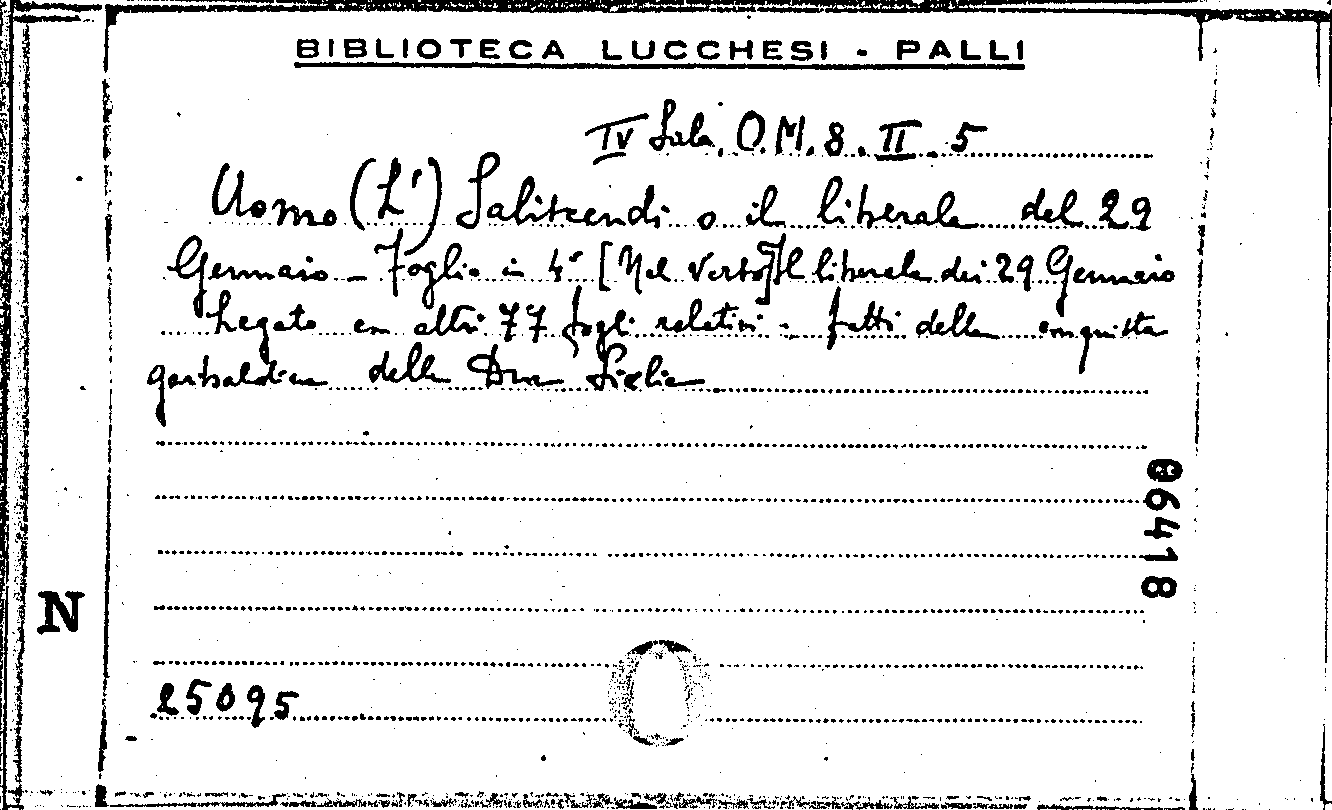 BIBLIOTECA LUCCHESI - PALLI
IV Sala. O.M. 8. II. 5
Uomo (L') Saliscendi o il liberale del 29
Gennaio - Foglio in 4° [Nel verso] Il liberale dei 29 Gennaio
Legato con altri 77 fogli relativi fatti della conquista
garibaldina delle Due Sicilie
06418
N
25095